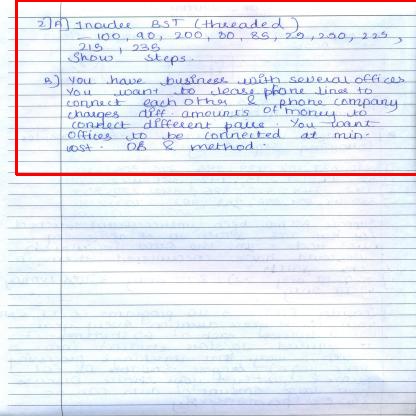 2]A] Inorder BST (threaded)
- 100, 90, 200, 80, 85, 25, 250, 225,
215, 235
Show steps.
B.) You have business with several offices
You want to lease phone lines to
connect each other & phone company
charges diff. amounts of money to
connect different pairs. You want
offices to be connected at min.
cost. DS & method.